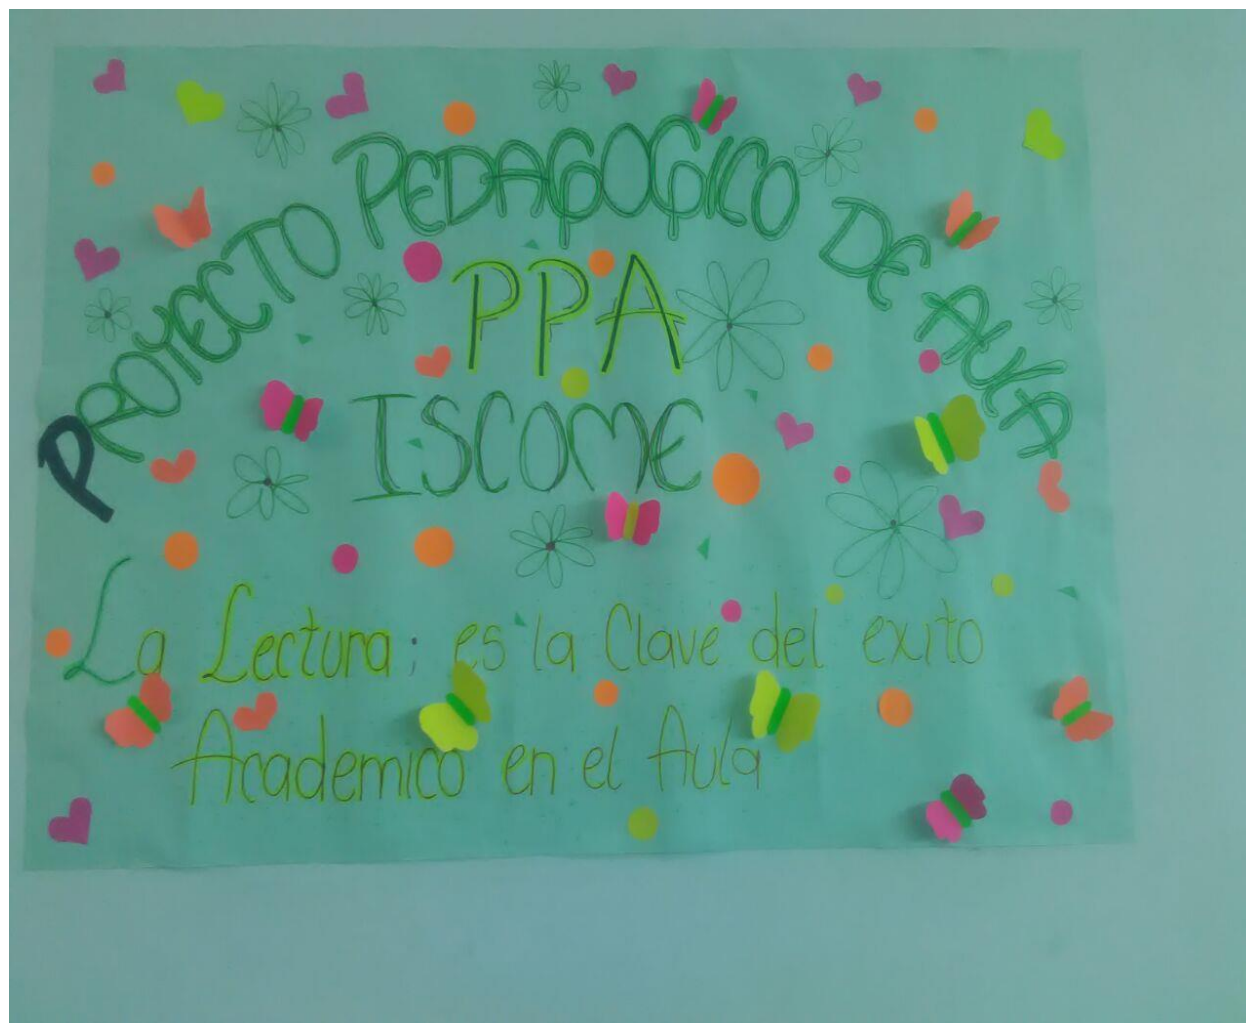 PROYECTO PEDAGOGICO DE AULA
PPA
ISCOME
La Lectura; es la Clave del exito
Academico en el Aula